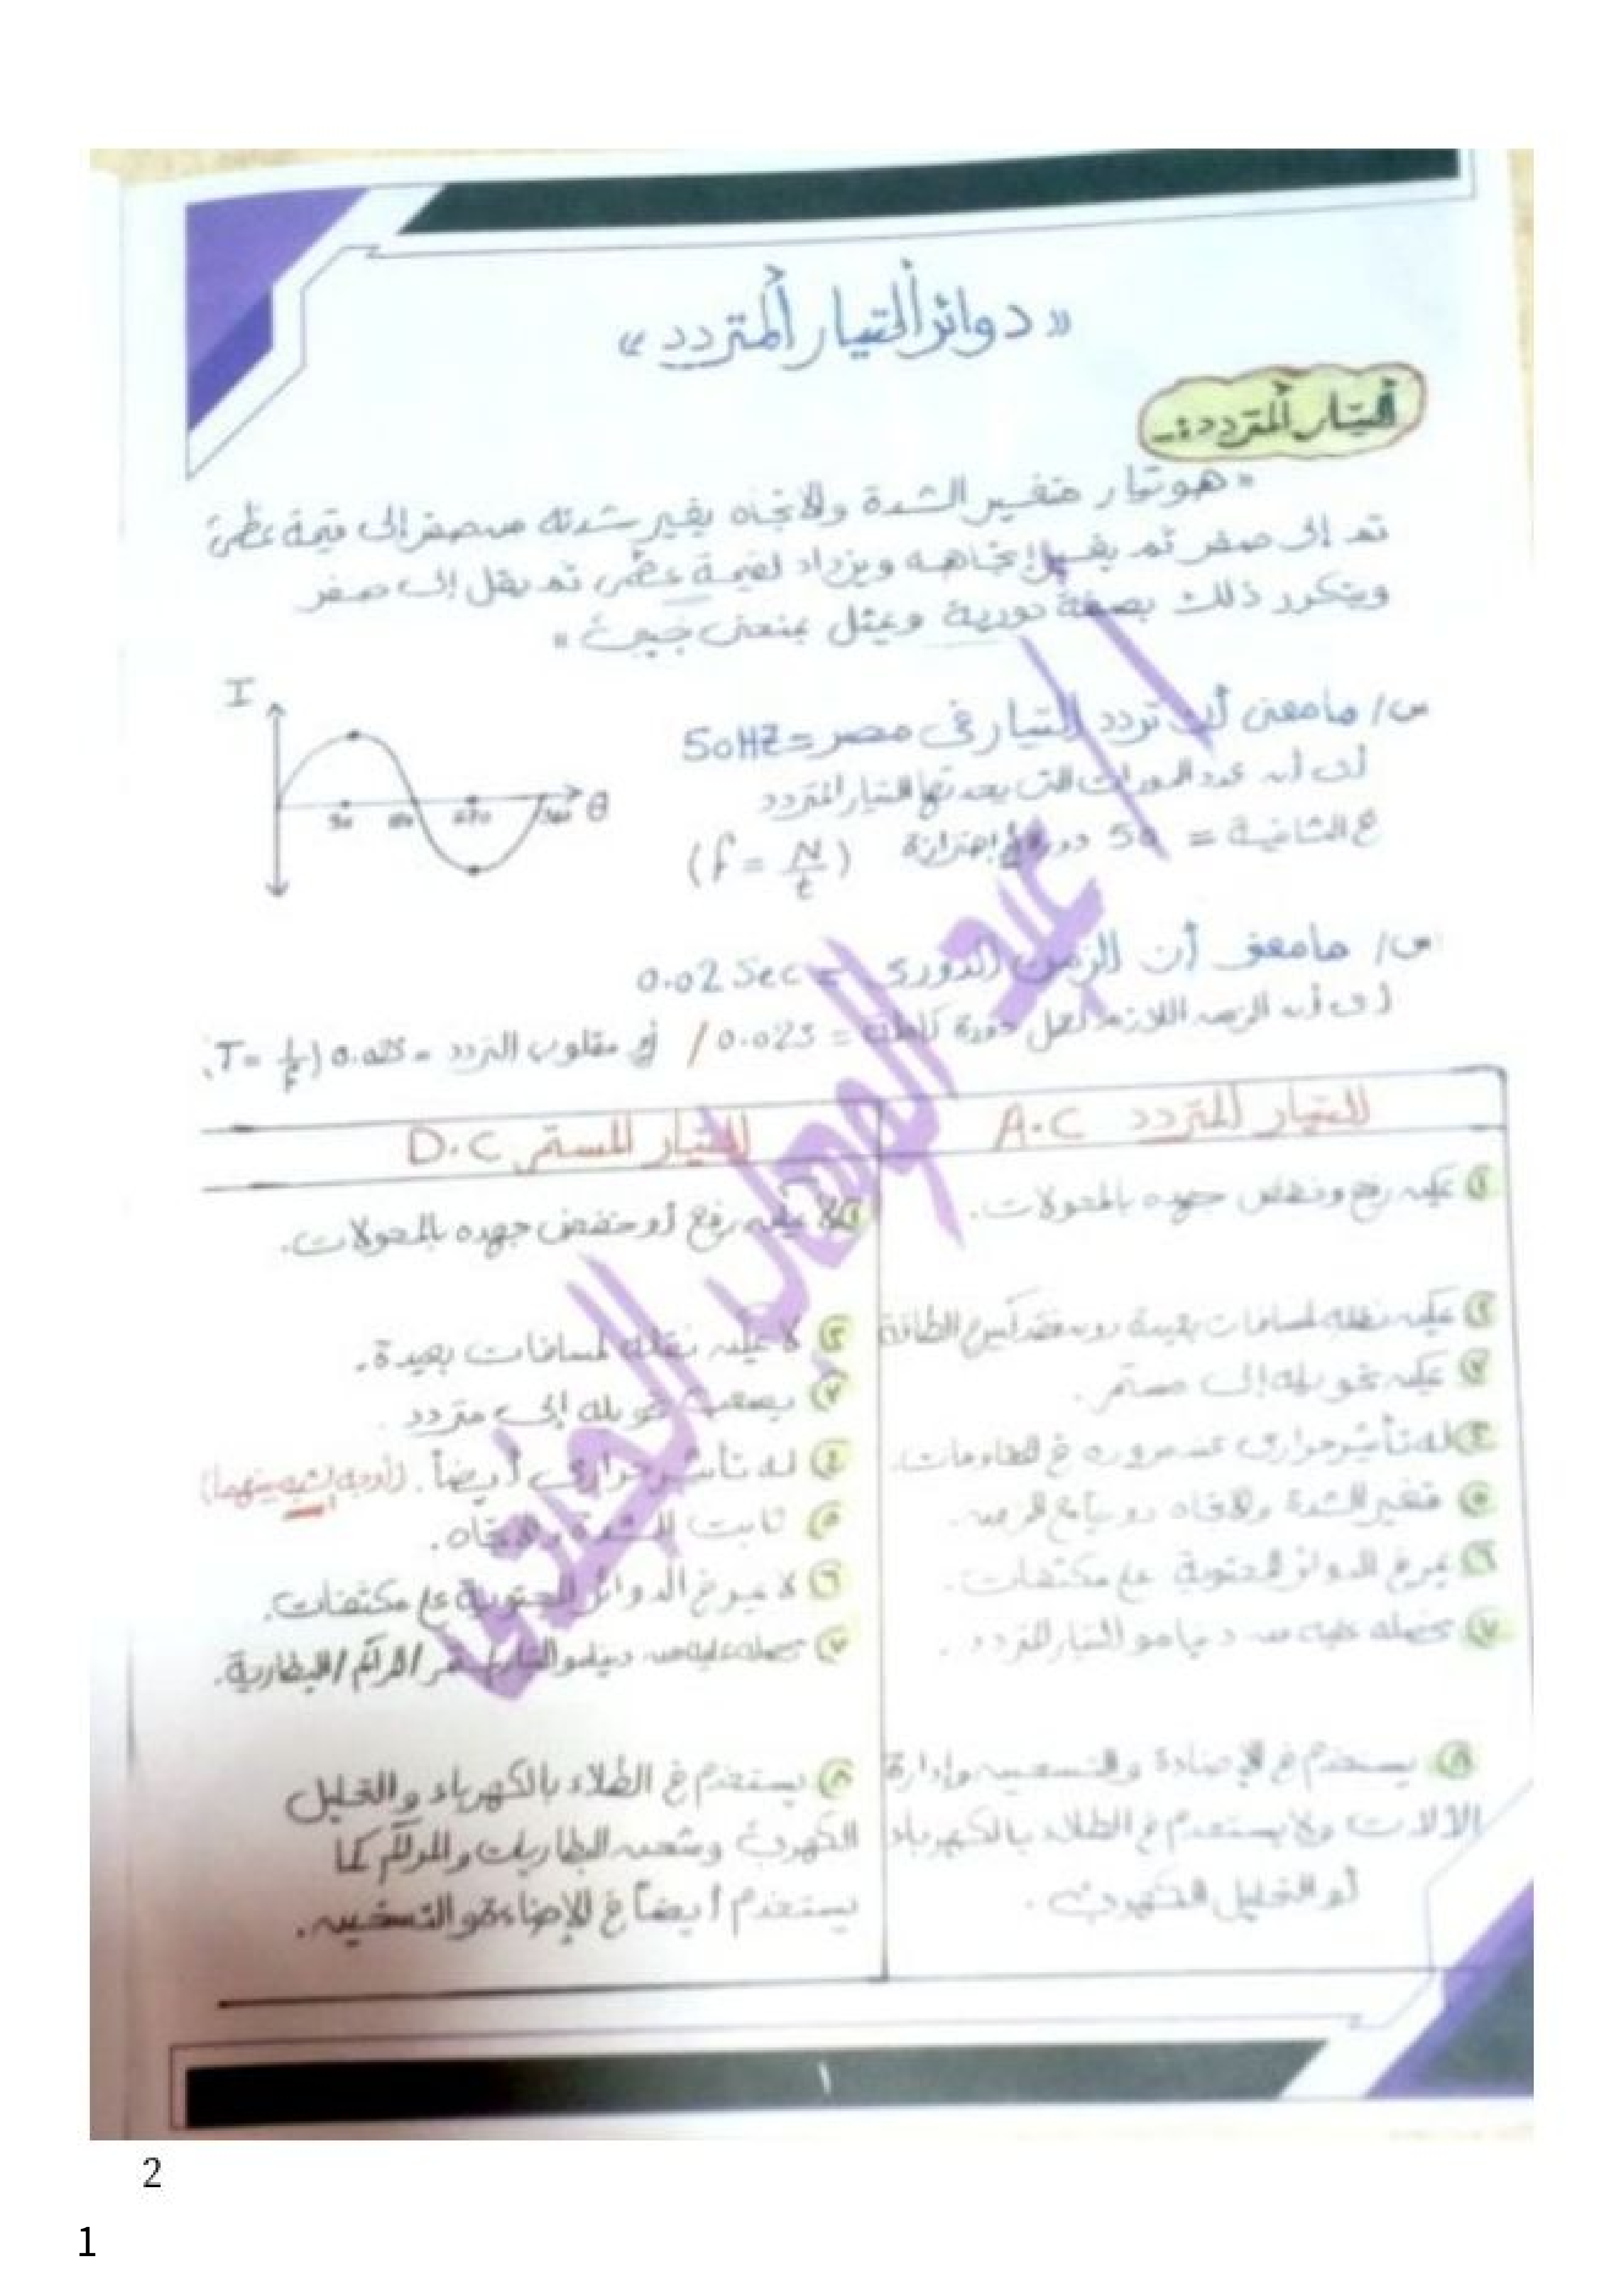 « دوائر التيار المتردد »
التيار المتردد :-
" هو تيار متغير الشدة والاتجاه يغير شدته من صفر إلى قيمة عظمى
ثم إلى صفر ثم يغير إتجاهه ويزداد لقيمة عظمى ثم يقل إلى صفر
ويتكرر ذلك بصفة دورية ويمثل بمنحنى جيبى "
س/ مامعنى أن تردد التيار فى مصر = 50HZ
أى أن عدد الدورات التى يحدثها التيار المتردد
فى الثانية = 50 دورة أو إهتزازة (f = N/t)
I
90 180 270 360 θ
س/ مامعنى أن الزمن الدورى = 0.02 Sec
أى أن الزمن اللازم لعمل دورة كاملة = 0.02S / أو مقلوب التردد = 0.02S (T = 1/F)
التيار المتردد A.C
التيار المستمر D.C
١ يمكن رفع وخفض جهده بالمحولات.
١ لا يمكن رفع أو خفض جهده بالمحولات.
٢ يمكن نقله لمسافات بعيدة دون فقد كبير فى الطاقة
٢ لا يمكن نقله لمسافات بعيدة.
٣ يمكن تحويله إلى مستمر.
٣ يصعب تحويله إلى متردد.
٤ له تأثير حرارى عند مروره فى المقاومات.
٤ له تأثير حرارى أيضاً. (أوجه الشبه بينهما)
٥ متغير الشدة والاتجاه دورياً مع الزمن.
٥ ثابت الشدة والاتجاه.
٦ يمر فى الدوائر المحتوية على مكثفات.
٦ لا يمر فى الدوائر المحتوية على مكثفات.
٧ نحصل عليه من دينامو التيار المتردد.
٧ نحصل عليه من دينامو التيار / المراكم / البطارية.
٨ يستخدم فى الإضاءة والتسخين وإدارة
الآلات ولا يستخدم فى الطلاء بالكهرباء
أو التحليل الكهربى.
٨ يستخدم فى الطلاء بالكهرباء والتحليل
الكهربى وشحن البطاريات والمراكم كما
يستخدم أيضاً فى الإضاءة والتسخين.
١
2
1